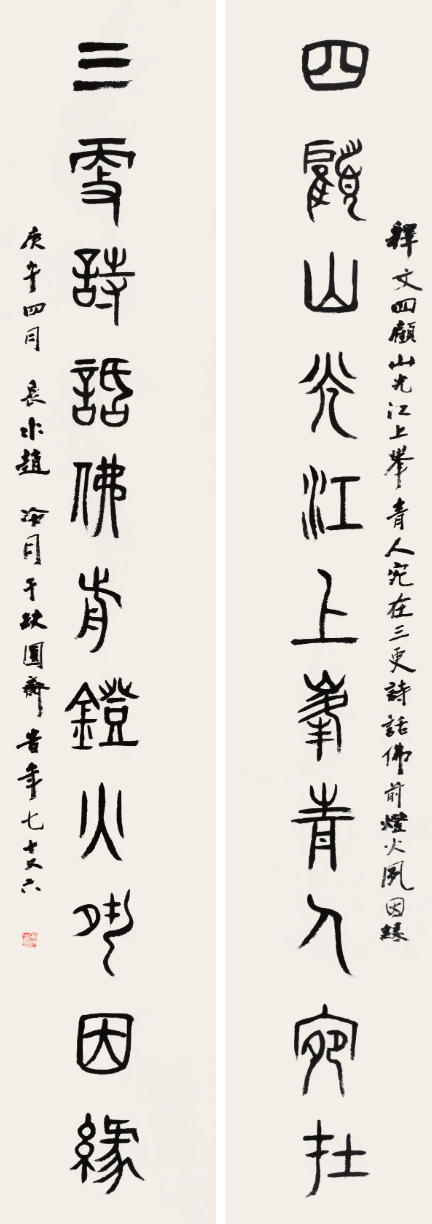 釋文四顧山光江上峯青人宛在三更詩話佛前燈火夙因緣
四顧山光江上峯青人宛在
三更詩話佛前鐙火夙因緣
庚午四月 長水趙冷月于缺圓齋旹年七十又六